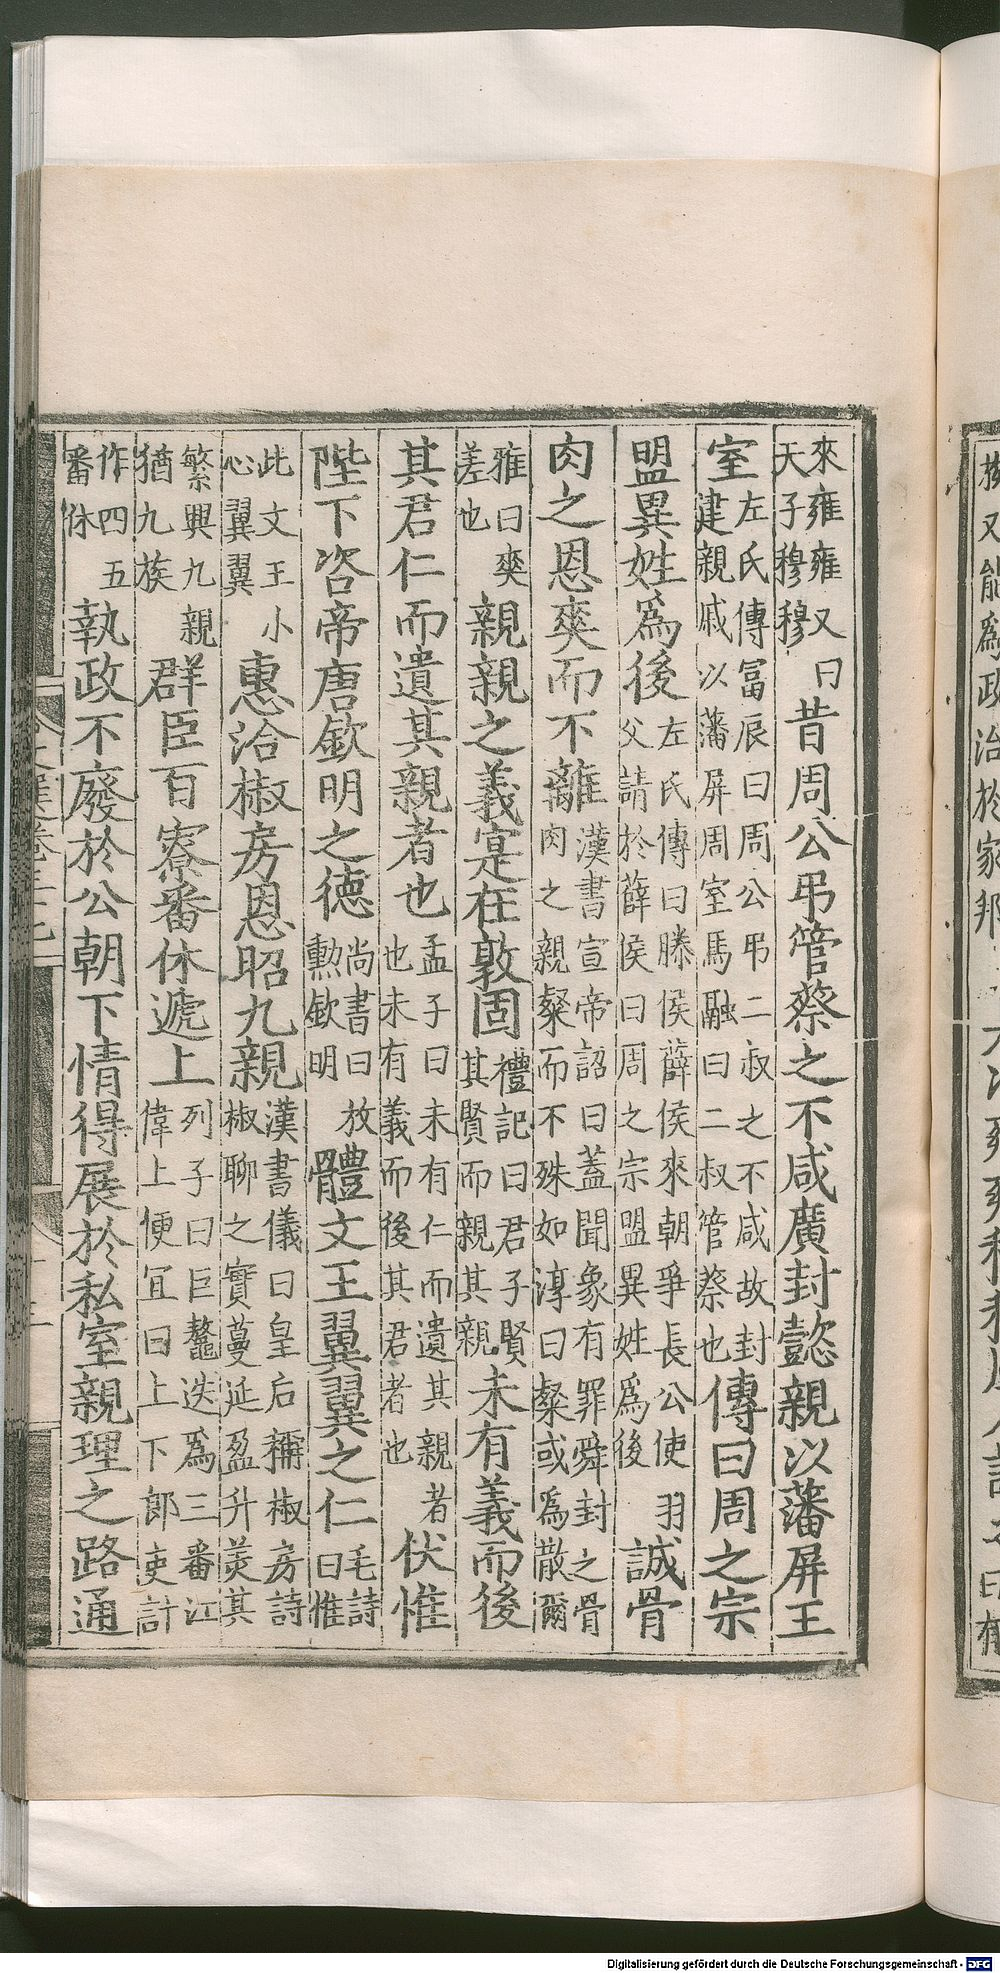 又能爲政治於家邦
來雍雍又曰天子穆穆昔周公弔管蔡之不咸廣封懿親以藩屏王
室左氏傳冨辰曰周公弔二叔之不咸故封建親戚以藩屏周室馬融曰二叔管蔡也傳曰周之宗
盟異姓爲後左氏傳曰滕侯薛侯來朝爭長公使羽父請於薛侯曰周之宗盟異姓爲後誠骨
肉之恩爽而不離漢書宣帝詔曰蓋聞象有罪舜封之骨肉之親粲而不殊如淳曰粲或爲散爾
雅曰爽差也親親之義寔在敦固禮記曰君子賢其賢而親其親未有義而後
其君仁而遺其親者也孟子曰未有仁而遺其親者也未有義而後其君者也伏惟
陛下咨帝唐欽明之德尚書曰放勲欽明體文王翼翼之仁毛詩曰惟
此文王小心翼翼惠洽椒房恩昭九親漢書儀曰皇后稱椒房詩椒聊之實蔓延盈升羙其
繁興九親猶九族群臣百寮番休遞上列子曰巨鼇迭爲三番江偉上便冝曰上下郎吏計
作四五番休執政不廢於公朝下情得展於私室親理之路通
Digitalisierung gefördert durch die Deutsche Forschungsgemeinschaft - DFG